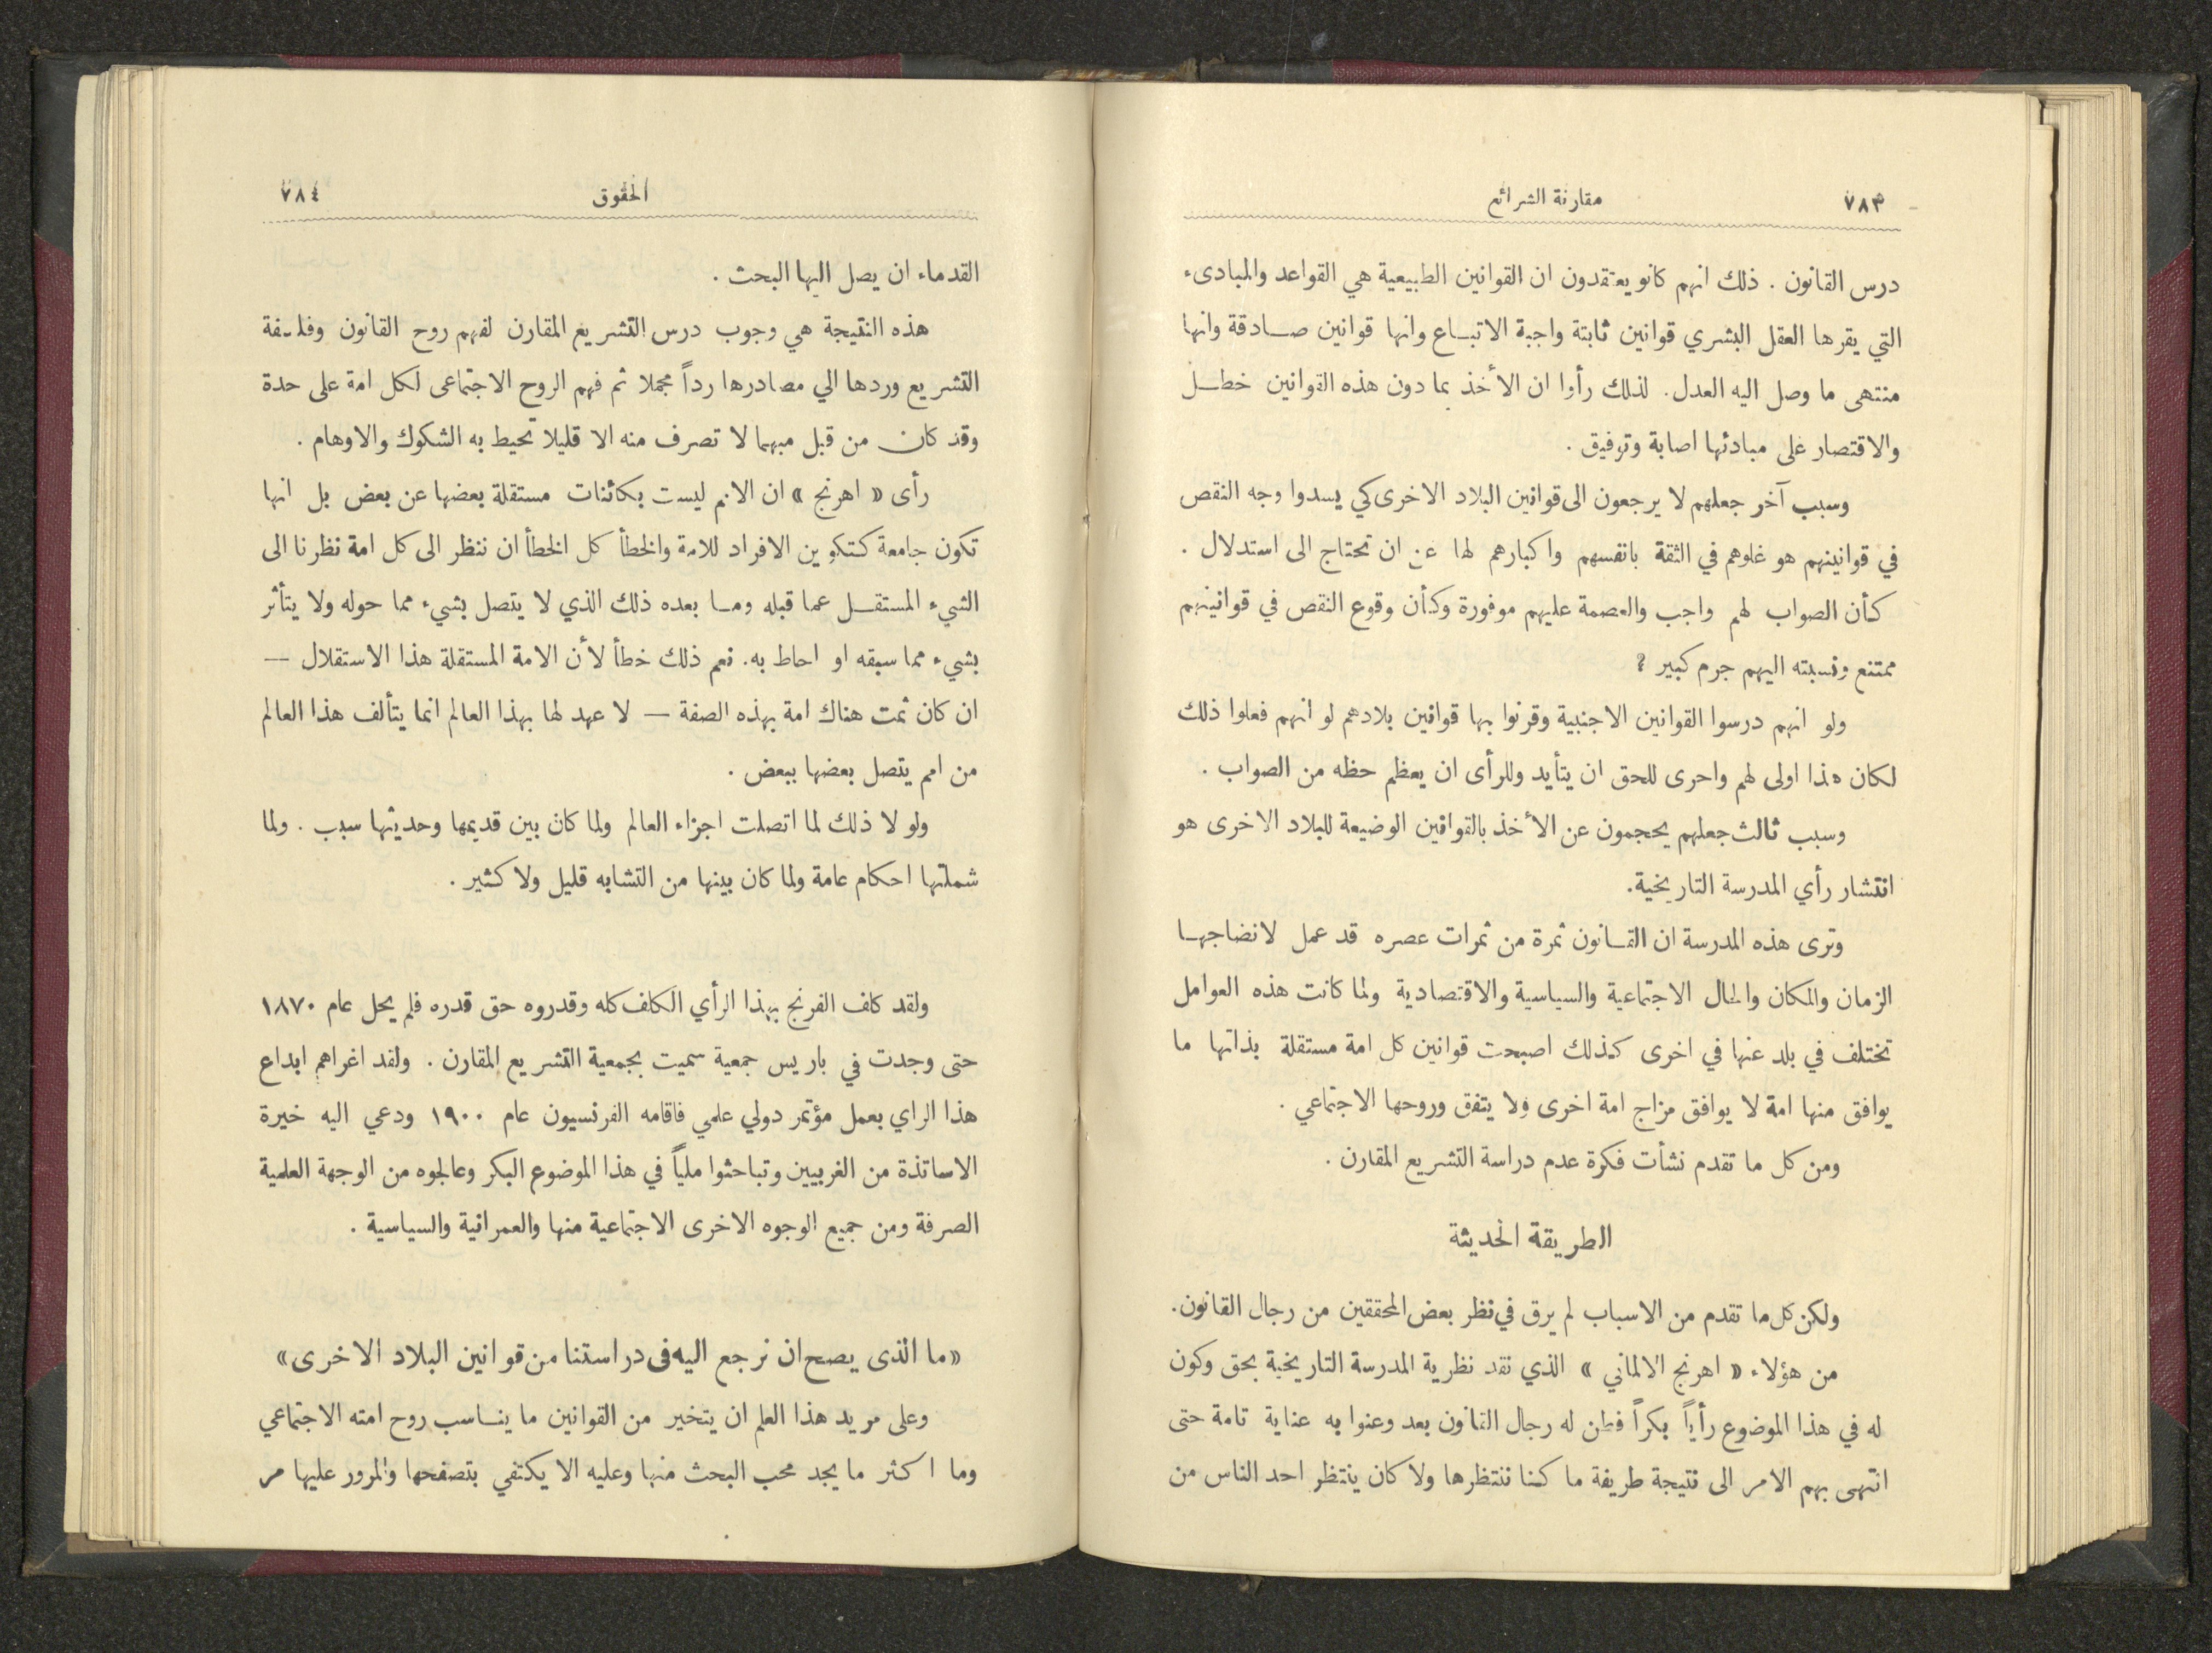 ٧٨٣
مقارنة الشرائع
درس القانون . ذلك انهم كانو يعتقدون ان القوانين الطبيعية هي القواعد والمبادىء
التي يقرها العقل البشري قوانين ثابتة واجبة الاتباع وانها قوانين صادقة وانها
منتهى ما وصل اليه العدل . لذلك رأوا ان الأخذ بما دون هذه القوانين خطل
والاقتصار على مبادئها اصابة وتوفيق .
وسبب آخر جعلهم لا يرجعون الى قوانين البلاد الاخرى كي يسدوا وجه النقص
في قوانينهم هو غلوهم في الثقة بانفسهم واكبارهم لها عن ان تحتاج الى استدلال .
كأن الصواب لهم واجب والعصمة عليهم موفورة وكأن وقوع النقص في قوانينهم
ممتنع ونسبته اليهم جرم كبير ؟
ولو انهم درسوا القوانين الاجنبية وقرنوا بها قوانين بلادهم لو انهم فعلوا ذلك
لكان هذا اولى لهم واحرى للحق ان يتأيد وللرأى ان يعظم حظه من الصواب .
وسبب ثالث جعلهم يحجمون عن الأخذ بالقوانين الوضيعة للبلاد الاخرى هو
انتشار رأي المدرسة التاريخية .
وترى هذه المدرسة ان القانون ثمرة من ثمرات عصره قد عمل لانضاجها
الزمان والمكان والحال الاجتماعية والسياسية والاقتصادية ولما كانت هذه العوامل
تختلف في بلد عنها في اخرى كذلك اصبحت قوانين كل امة مستقلة بذاتها ما
يوافق منها امة لا يوافق مزاج امة اخرى ولا يتفق وروحها الاجتماعي .
ومن كل ما تقدم نشأت فكرة عدم دراسة التشريع المقارن .
الطريقة الحديثة
ولكن كل ما تقدم من الاسباب لم يرق في نظر بعض المحققين من رجال القانون .
من هؤلاء « اهرنج الالماني » الذي نقد نظرية المدرسة التاريخية بحق وكون
له في هذا الموضوع رأياً بكراً فطن له رجال القانون بعد وعنوا به عناية تامة حتى
انتهى بهم الامر الى نتيجة طريفة ما كنا ننتظرها ولا كان ينتظر احد الناس من
الحقوق
٧٨٤
القدماء ان يصل اليها البحث .
هذه النتيجة هي وجوب درس التشريع المقارن لفهم روح القانون وفلسفة
التشريع وردها الي مصادرها رداً مجملا ثم فهم الروح الاجتماعى لكل امة على حدة
وقد كان من قبل مبهما لا تصرف منه الا قليلا تحيط به الشكوك والاوهام .
رأى « اهرنج » ان الامم ليست بكائنات مستقلة بعضها عن بعض بل انها
تكون جامعة كتكوين الافراد للامة والخطأ كل الخطأ ان ننظر الى كل امة نظرنا الى
الشيء المستقل عما قبله وما بعده ذلك الذي لا يتصل بشيء مما حوله ولا يتأثر
بشيء مما سبقه او احاط به . نعم ذلك خطأ لأن الامة المستقلة هذا الاستقلال —
ان كان ثمت هناك امة بهذه الصفة — لا عهد لها بهذا العالم انما يتألف هذا العالم
من امم يتصل بعضها ببعض .
ولو لا ذلك لما اتصلت اجزاء العالم ولما كان بين قديمها وحديثها سبب . ولما
شملتها احكام عامة ولما كان بينها من التشابه قليل ولا كثير .
ولقد كلف الفرنج بهذا الرأي الكلف كله وقدروه حق قدره فلم يحل عام ١٨٧٠
حتى وجدت في باريس جمعية سميت بجمعية التشريع المقارن . ولقد اغراهم ابداع
هذا الراي بعمل مؤتمر دولي علمي فاقامه الفرنسيون عام ١٩٠٠ ودعي اليه خيرة
الاساتذة من الغربيين وتباحثوا ملياً في هذا الموضوع البكر وعالجوه من الوجهة العلمية
الصرفة ومن جميع الوجوه الاخرى الاجتماعية منها والعمرانية والسياسية .
«ما الذى يصح ان نرجع اليه فى دراستنا من قوانين البلاد الاخرى»
وعلى مريد هذا العلم ان يتخير من القوانين ما يناسب روح امته الاجتماعي
وما اكثر ما يجد محب البحث منها وعليه الا يكتفي بتصفحها والمرور عليها مر